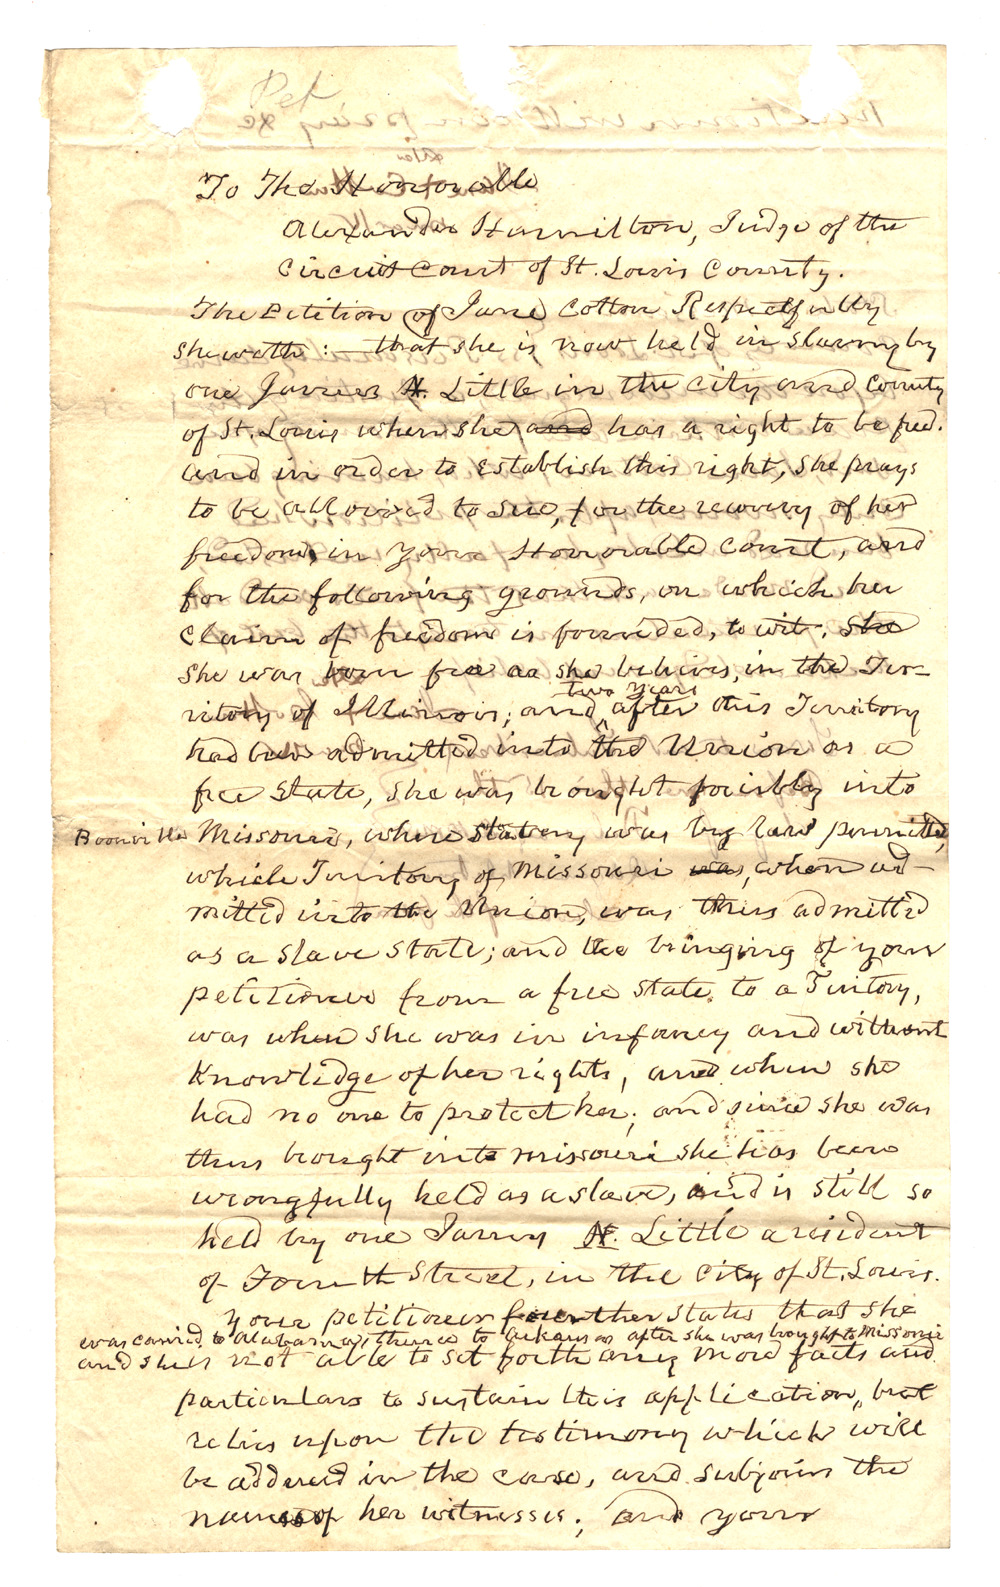 Pet
To The Honorable
Alexander Hamilton, Judge of the
Circuit Court of St. Louis County.
The Petition of Jane Cotton Respectfully
sheweth:— that she is now held in slavery by
one James N. Little in the City and County
of St. Louis when she and has a right to be free.
And in order to establish this right, she prays
to be allowed to sue, for the recovery of her
freedom, in your Honorable Court, and
for the following grounds, on which her
claim of freedom is founded, to wit: She
she was born free as she believes, in the Ter-
two years
ritory of Illinois; and ^ after this Territory
had been admitted into the Union as a
free State, she was brought forcibly into
Boonville Missouri, where slavery was by law permitted,
which Territory of Missouri was, when ad-
mitted into the Union, was thus admitted
as a slave State; and the bringing of your
petitioner from a free State to a Territory,
was when she was in infancy and without
knowledge of her rights, and when she
had no one to protect her; and since she was
thus brought into Missouri she has been
wrongfully held as a slave, and is still so
held by one James N. Little a resident
of Fourth Street, in the City of St. Louis.
Your petitioner further states that she
was carried to Alabama & thence to Arkansas after she was brought to Missouri
and she is not able to set forth any more facts and
particulars to sustain this application, but
relies upon the testimony which will
be adduced in the case, and subjoins the
names of her witnesses; and your